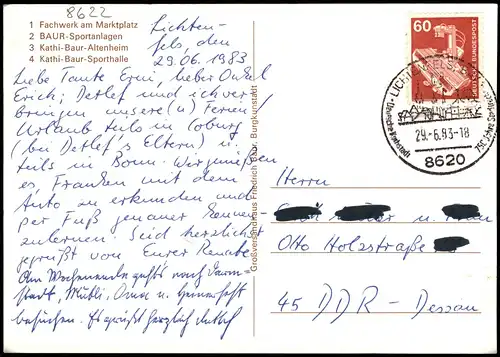 8622
1 Fachwerk am Marktplatz
2 BAUR-Sportanlagen
3 Kathi-Baur-Altenheim
4 Kathi-Baur-Sporthalle
Lichten-
fels, den
29.06.1983
Liebe Tante Erni, lieber Onkel
Erich; Detlef und ich ver-
bringen unsere(n) Ferien/
Urlaub teils in Coburg
(bei Detlef's Eltern) u.
teils in Bonn. Wir genießen
es, Franken mit dem
Auto zu erkunden und
per Fuß genauer kennen-
zulernen. Seid herzlichst
gegrüßt von Eurer Renate
Am Wochenende geht's nach Darm-
stadt, Mutti, Oma u. Geschwister
besuchen. Es grüßt herzlich Detlef
Großversandhaus Friedrich Baur, Burgkunstadt
60
DEUTSCHE BUNDESPOST
LICHTENFELS
29.-6.83-18
8620
Herrn
u.
Otto Holzstraße
45 DDR - Dessau